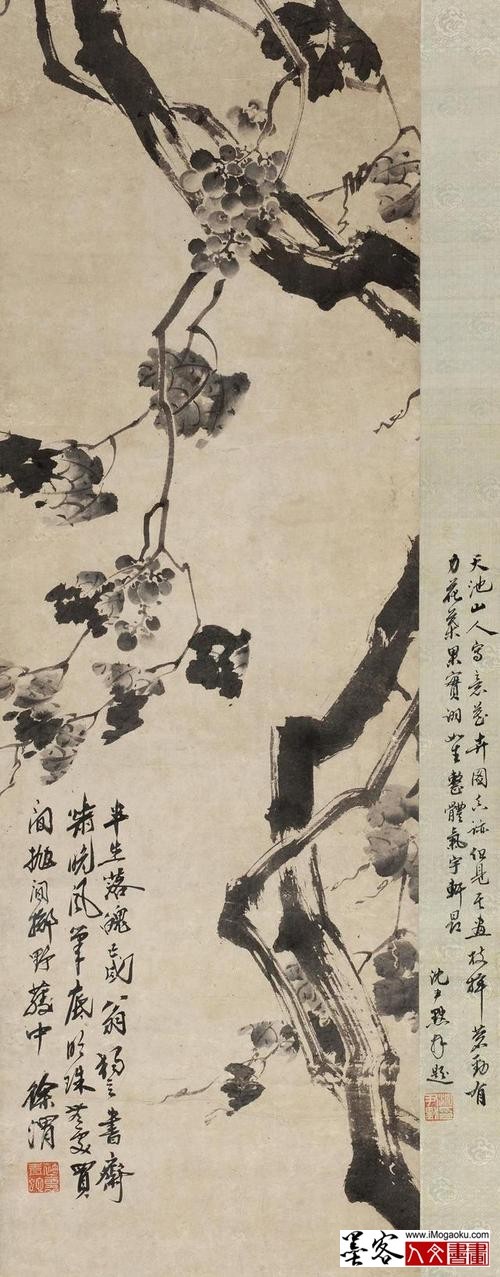 半生落魄已成翁獨立書齋
嘯晚風筆底明珠無處買
閒拋閒擲野藤中 徐渭
天池山人寫意花卉圖真跡但見其畫枝幹蒼勁有
力花葉果實栩如生整體氣宇軒昂
沈尹默拜題
www.iMogaoku.com
墨客人文書畫